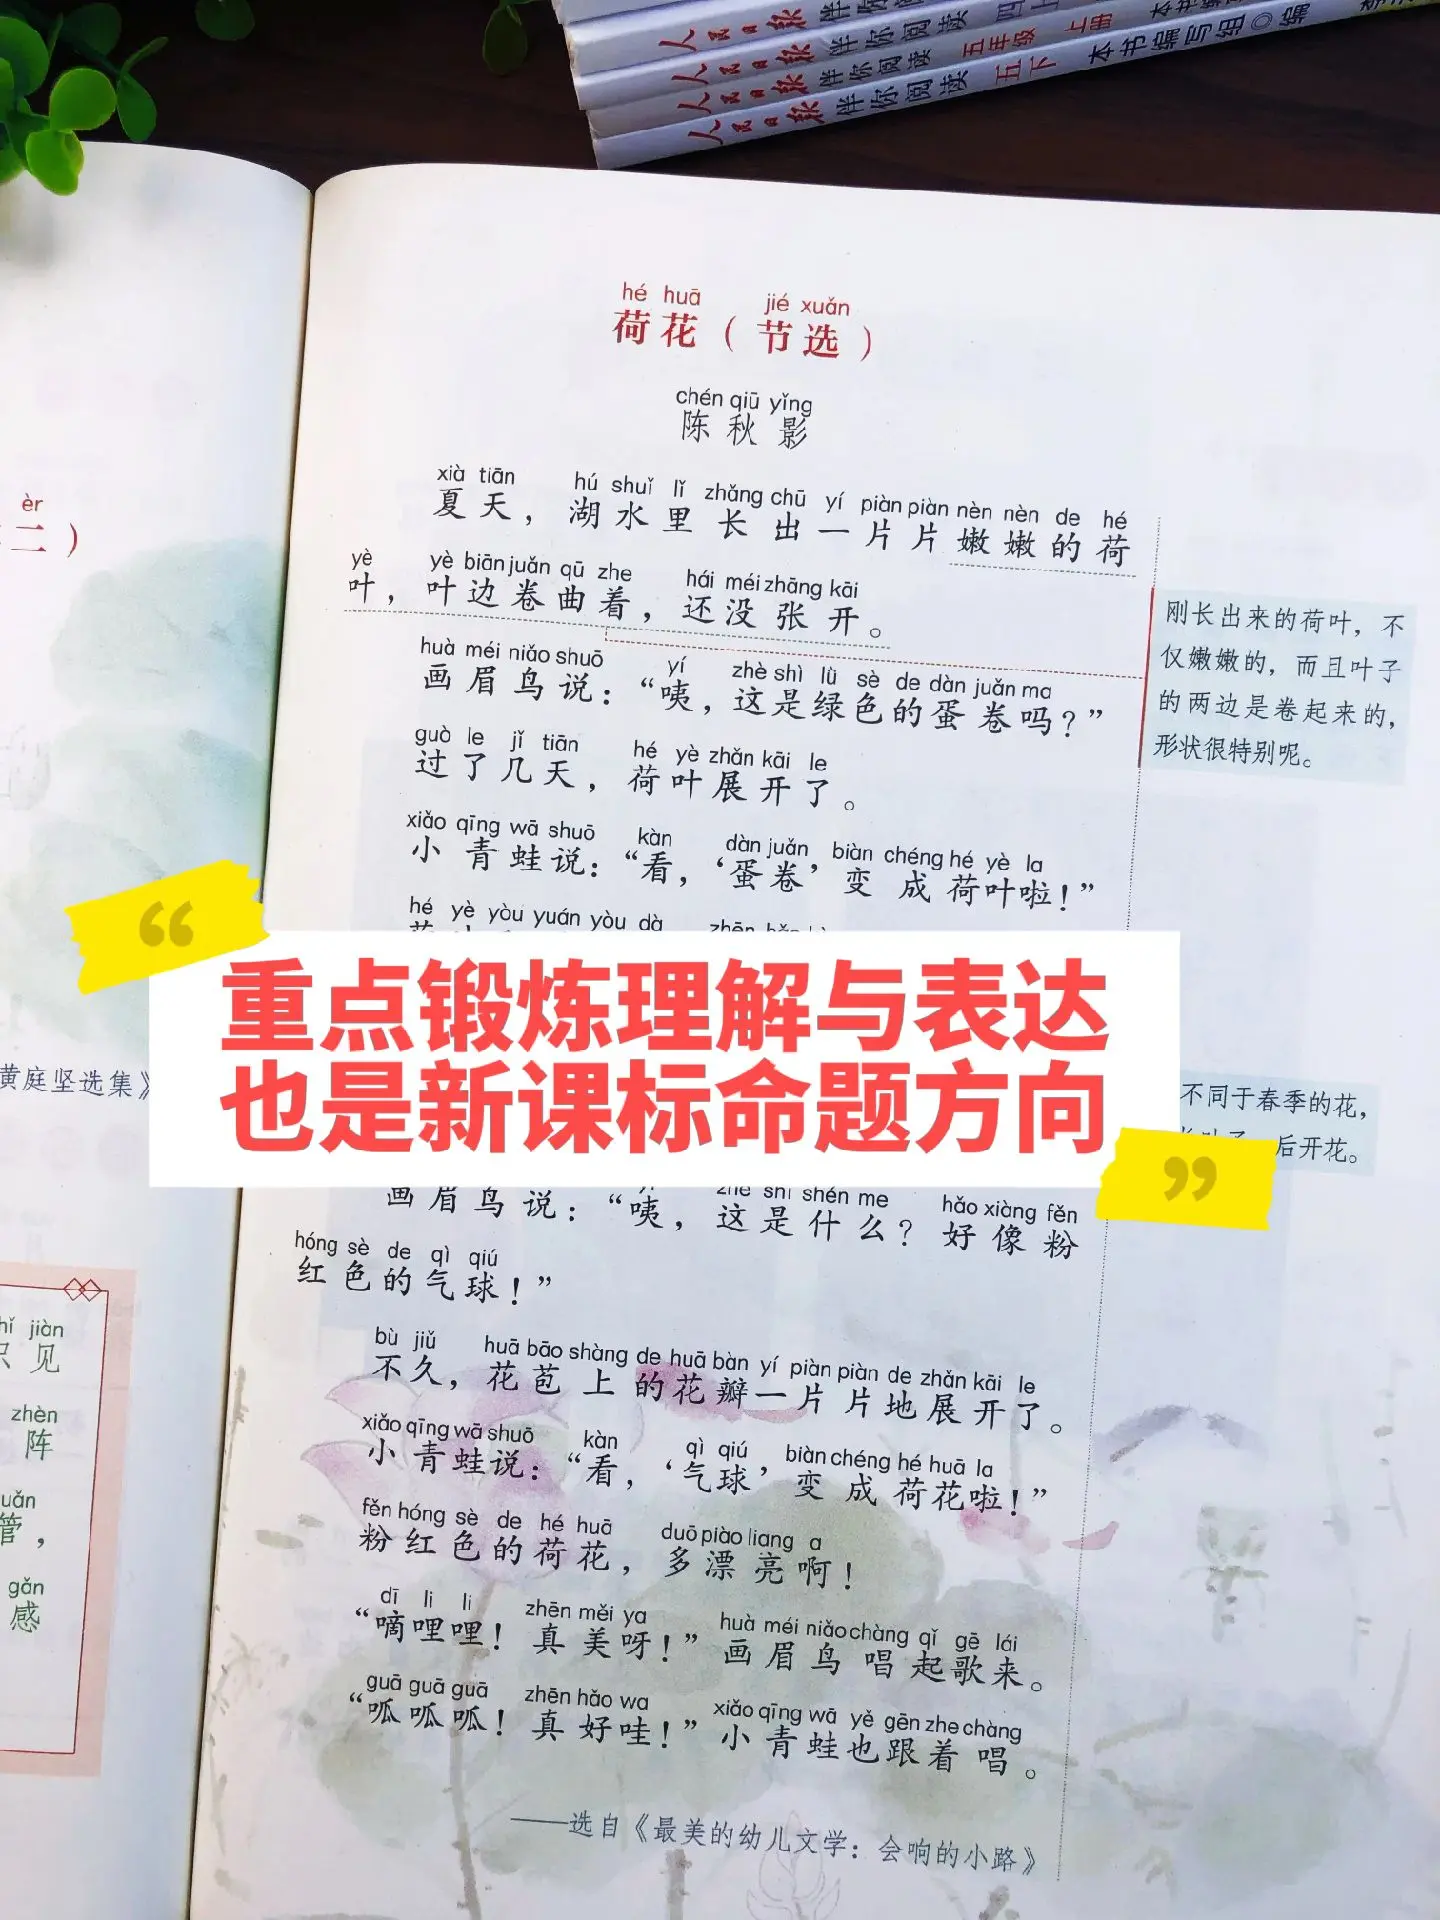 人民日报 伴你阅读 四上
人民日报 伴你阅读 五年级 上册
人民日报 伴你阅读 五下 本书编写组◎编
hé huā jié xuǎn
荷花（节选）
chén qiū yǐng
陈秋影
xià tiān hú shuǐ lǐ zhǎng chū yí piàn piàn nèn nèn de hé
夏天，湖水里长出一片片嫩嫩的荷
yè yè biān juǎn qū zhe hái méi zhāng kāi
叶，叶边卷曲着，还没张开。
huà méi niǎo shuō yí zhè shì lǜ sè de dàn juǎn ma
画眉鸟说：“咦，这是绿色的蛋卷吗？”
guò le jǐ tiān hé yè zhǎn kāi le
过了几天，荷叶展开了。
xiǎo qīng wā shuō kàn dàn juǎn biàn chéng hé yè la
小青蛙说：“看，‘蛋卷’变成荷叶啦！”
hé yè yòu yuán yòu dà
重点锻炼理解与表达
也是新课标命题方向
画眉鸟说：“咦，这是什么？好像粉
hóng sè de qì qiú
红色的气球！”
bù jiǔ huā bāo shàng de huā bàn yí piàn piàn de zhǎn kāi le
不久，花苞上的花瓣一片片地展开了。
xiǎo qīng wā shuō kàn qì qiú biàn chéng hé huā la
小青蛙说：“看，‘气球’变成荷花啦！”
fěn hóng sè de hé huā duō piào liang a
粉红色的荷花，多漂亮啊！
dī li li zhēn měi ya huà méi niǎo chàng qǐ gē lái
“嘀哩哩！真美呀！”画眉鸟唱起歌来。
guā guā guā zhēn hǎo wa xiǎo qīng wā yě gēn zhe chàng
“呱呱呱！真好哇！”小青蛙也跟着唱。
——选自《最美的幼儿文学：会响的小路》
刚长出来的荷叶，不
仅嫩嫩的，而且叶子
的两边是卷起来的，
形状很特别呢。
不同于春季的花，
后开花。
èr
二）
黄庭坚选集》
jiàn
见
zhèn
阵
管，
gǎn
感